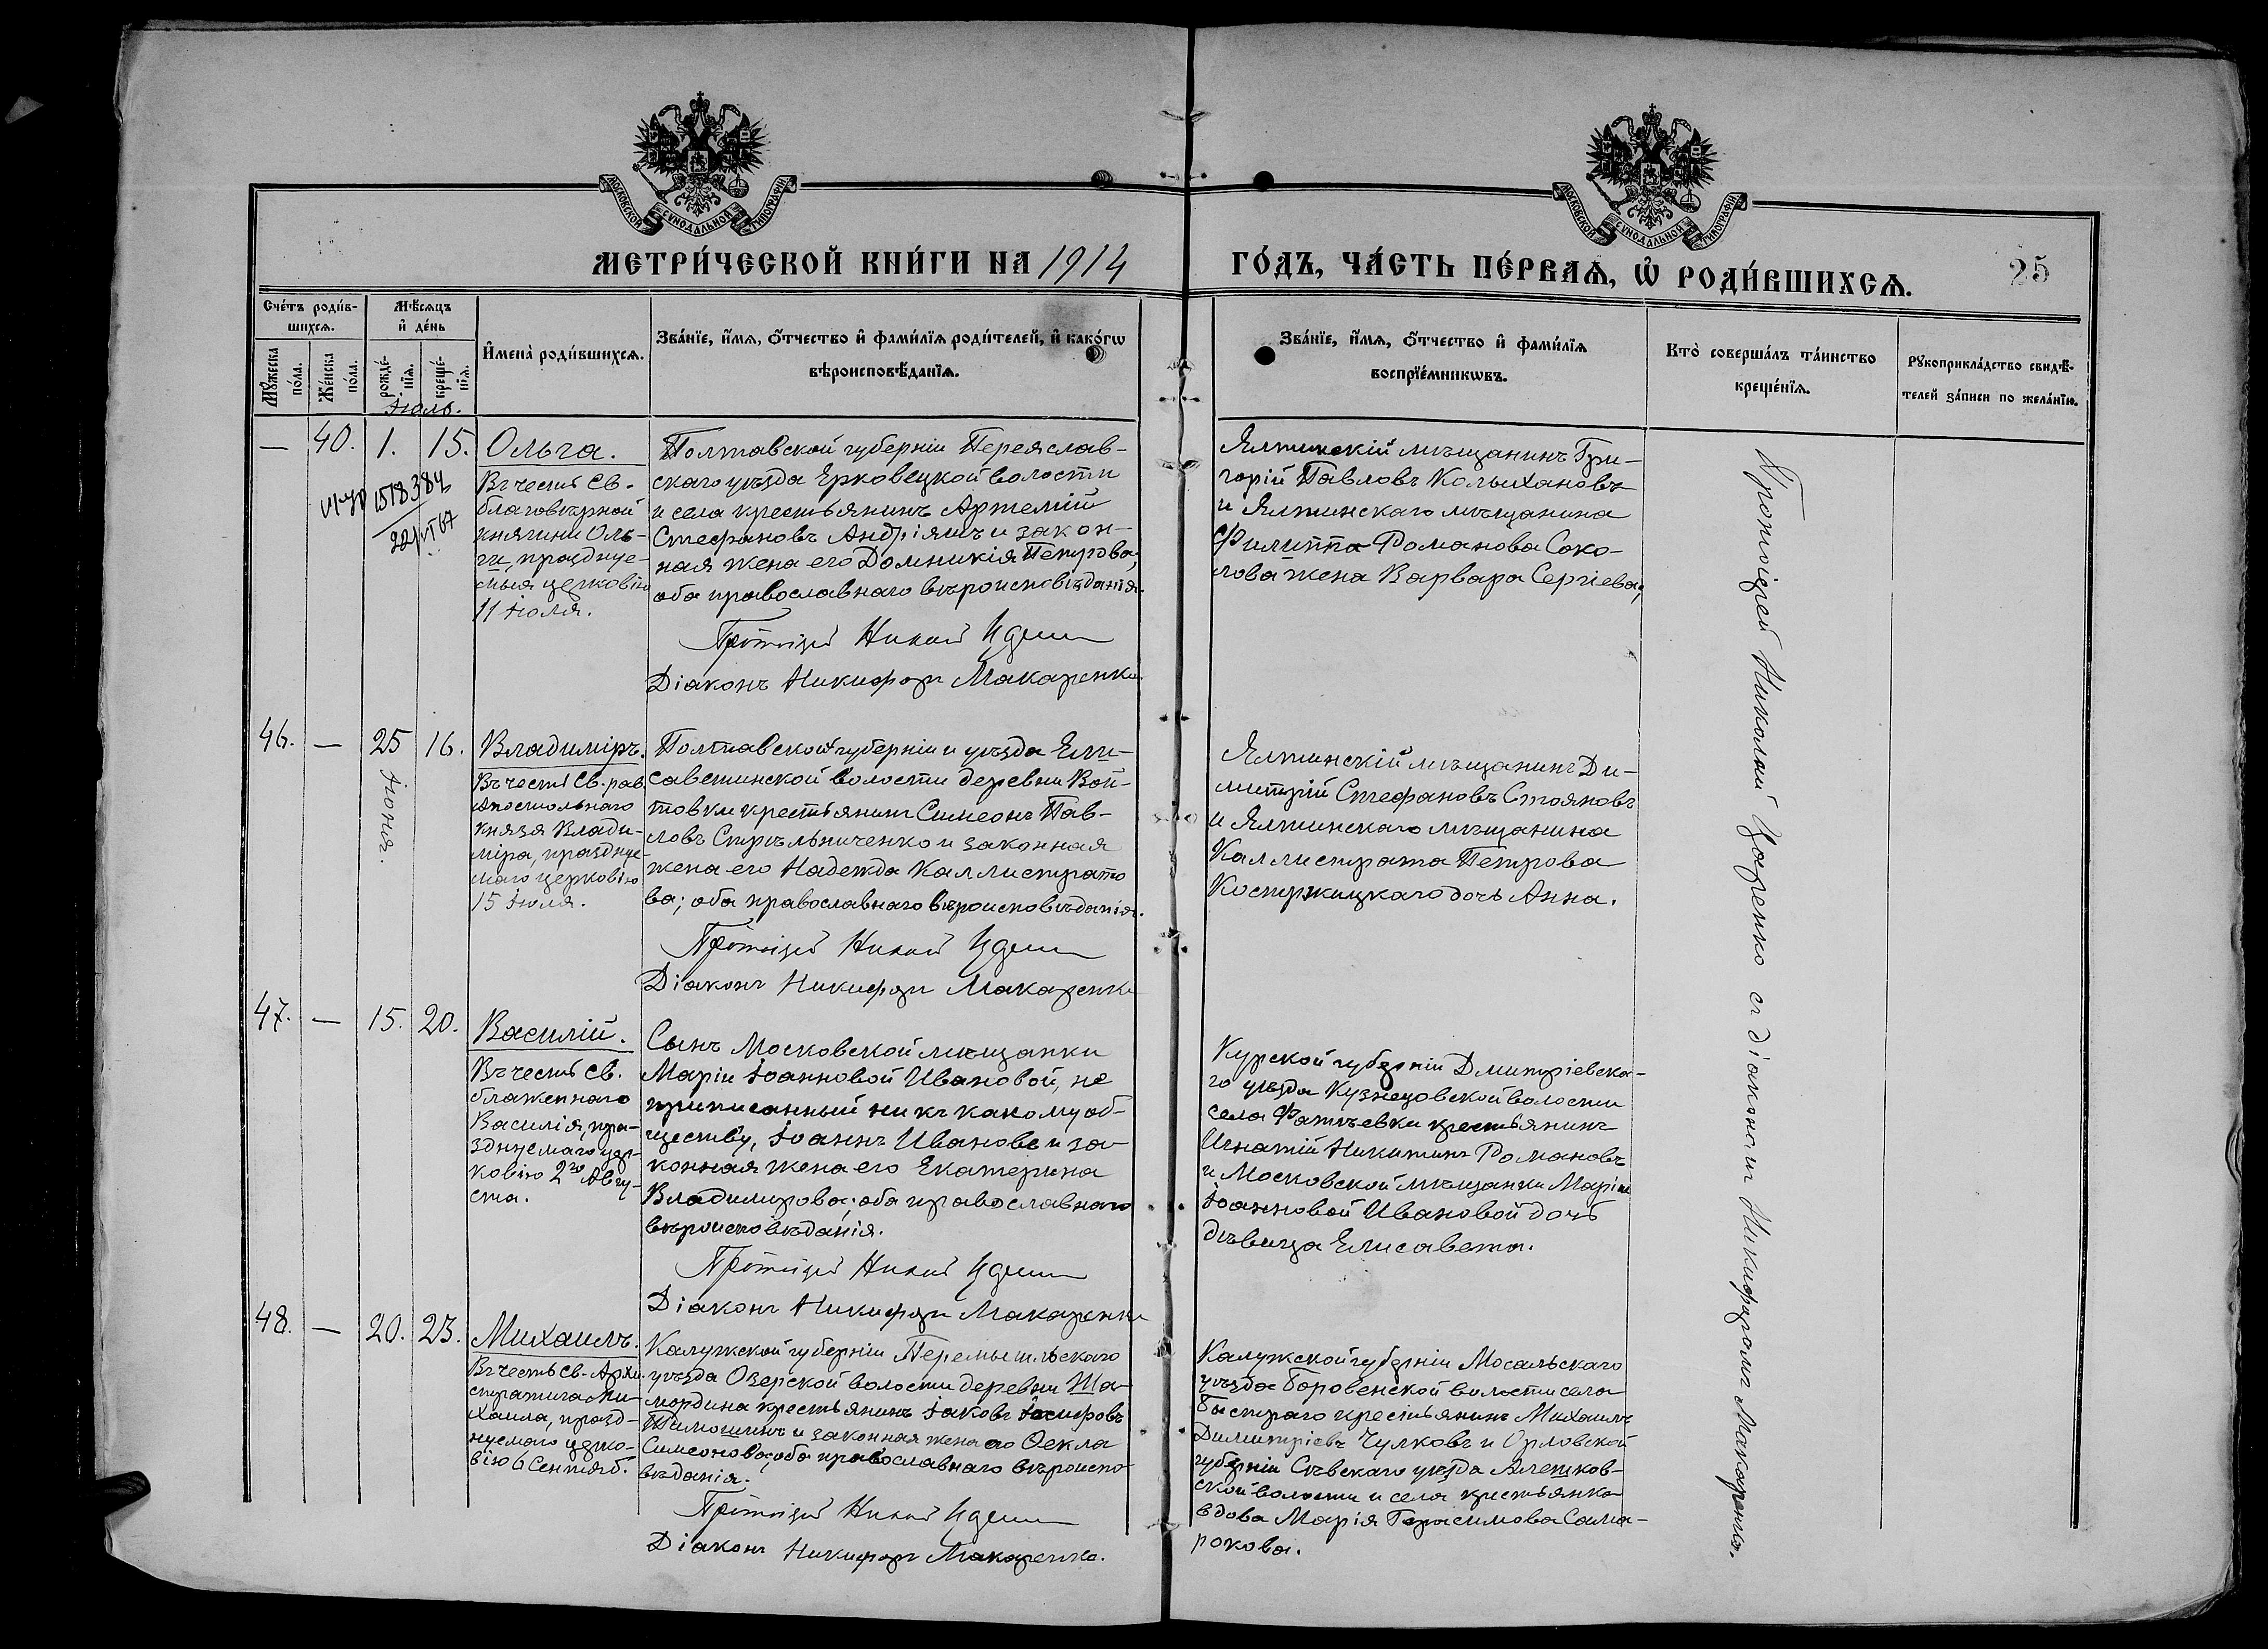 МОСКОВСКОЙ СѴНОДАЛЬНОЙ ТИПОГРАФІИ
МОСКОВСКОЙ СѴНОДАЛЬНОЙ ТИПОГРАФІИ
МЕТРИ́ЧЕСКОЙ КНИ́ГИ НА 1914
ГО́ДЪ, ЧА́СТЬ ПЕ́РВАѦ, Ѡ҆ РОДИ́ВШИХСѦ.
25
Сче́тъ роди́в-
шихсѧ.
Мѣ́сяцъ
и҆ де́нь
Мꙋ́жеска
по́ла.
Же́нска
по́ла.
рожде́-
нїѧ.
креще́-
нїѧ.
И҆мена̀ роди́вшихсѧ.
Зва́нїе, и҆́мѧ, ѻ҆́тчество и҆ фами́лїѧ роди́телей, и҆ како́гѡ
вѣроисповѣ́данїѧ.
Зва́нїе, и҆́мѧ, ѻ҆́тчество и҆ фами́лїѧ
воспрїе́мникѡвъ.
Кто̀ соверша́лъ та́инство
креще́нїѧ.
Рꙋкоприкла́дство свидѣ́-
телей за́писи по жела́нїю.
Іюль.
— 40. 1. 15. Ольга.
1518384
22/VI 67
Въ честь Св.
благовѣрной
княгини Оль-
ги, праздну́е-
мыя церковію
11 Іюля.
Полтавской губерніи Переяслав-
скаго уѣзда Ерковецкой волости
и села крестьянинъ Артемій
Стефановъ Андріяшъ и закон-
ная жена его Домникія Петрова;
оба православнаго вѣроисповѣданія.
Протоіерей Николай
Діаконъ Никифоръ Макаренко
Ялтинскій мѣщанинъ Гри-
горій Павловъ Колыхановъ
и Ялтинскаго мѣщанина
Филиппа Романова Соко-
лова жена Варвара Сергіева,
Протоіерей Николай Царенко съ діакономъ Никифоромъ Макаренко.
46. — 25 16. Владиміръ.
Іюня.
Въ честь Св. рав.
апостольнаго
князя Влади-
міра, праздну́е-
маго церковію
15 Іюля.
Полтавской губерніи и уѣзда Ели-
саветинской волости деревни Вой-
товки крестьянинъ Симеонъ Пав-
ловъ Стрѣльниченко и законная
жена его Надежда Каллистрато
ва; оба православнаго вѣроисповѣданія.
Протоіерей Николай
Діаконъ Никифоръ Макаренко
Ялтинскій мѣщанинъ Ди-
митрій Стефановъ Стояновъ
и Ялтинскаго мѣщанина
Каллистрата Петрова
Костржицкаго дочь Анна.
47. — 15. 20. Василій.
Въ честь Св.
блаженнаго
Василія, пра-
зднуемаго цер-
ковію 2го Авгу-
ста.
Сынъ Московской мѣщанки
Маріи Іоанновой Ивановой, не
приписанный ни къ какому об-
ществу, Іоаннъ Ивановъ и за-
конная жена его Екатерина
Владимирова; оба православнаго
вѣроисповѣданія.
Протоіерей Николай
Діаконъ Никифоръ Макаренко
Курской губерніи Дмитріевска-
го уѣзда Кузнецовской волости
села Фатѣевки крестьянинъ
Игнатій Никитинъ Романовъ
и Московской мѣщанки Маріи
Іоанновой Ивановой дочь
дѣвица Елисавета.
48. — 20. 23. Михаилъ.
Въ честь Св. Архи.
стратига Ми-
хаила, празд-
нуемаго церко-
вію 6 Сентяб.
Калужской губерніи Перемышльскаго
уѣзда Озерской волости деревни Ша-
мордина крестьянинъ Іаковъ Іосифовъ
Тимошинъ и законная жена его Ѳекла
Симеонова; оба православнаго вѣроиспо-
вѣданія.
Протоіерей Николай
Діаконъ Никифоръ Макаренко.
Калужской губерніи Мосальскаго
уѣзда Боровенской волости села
Быстраго крестьянинъ Михаилъ
Димитріевъ Чулковъ и Орловской
губерніи Сѣвскаго уѣзда Алешков-
ской волости и села крестьянка
вдова Марія Герасимова Сама-
рокова.